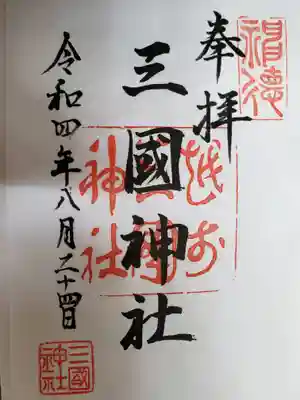 奉拝
三國神社
令和四年八月二十四日
越前
三國
神社
三國
神社